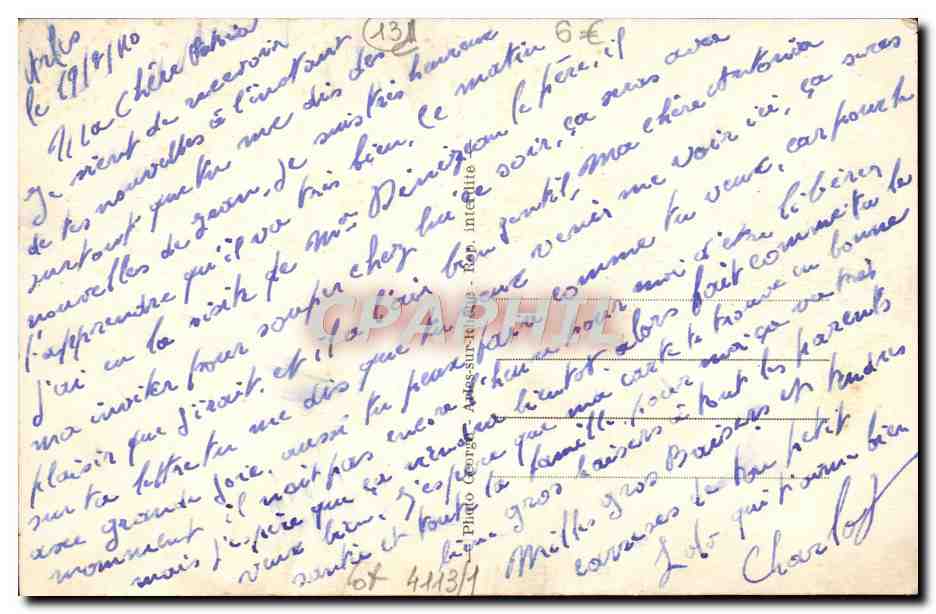 Arles
le 19/8/40
(13)
6€
Ma Chère Antonia
Je vient de recevoir
de tes nouvelles à l'instant
surtout que tu me dis des
nouvelles de Jean, Je suis très heureux
d'apprendre qu'il va très bien, ce matin
J'ai eu la visite de Mr le père, il
ma inviter pour souper chez lui ce soir, ça sera avec
plaisir que J'irait. et il a l'air bien gentil, Ma chère Antonia
sur ta lettre tu me dis que tu veux venir me voir ici, ça seras
avec grande Joie, aussi tu peux faire comme tu veux, car pour le
momment il n'ait pas encore l'heure pour moi d'être libérer
mais J'espère que ça viendra bientot. alors fait comme tu le
veux bien. J'espère que ma carte te trouve en bonne
santé et toute la famille, pour moi ça va très
bien, gros baisers à tout les parents
Milles gros Baisers et tendres
caresses de ton petit
Lolo qui t'aime bien
Charlot
Photo George - Arles-sur-Rhône - Rep. interdite
CPAPHIL
4113/1